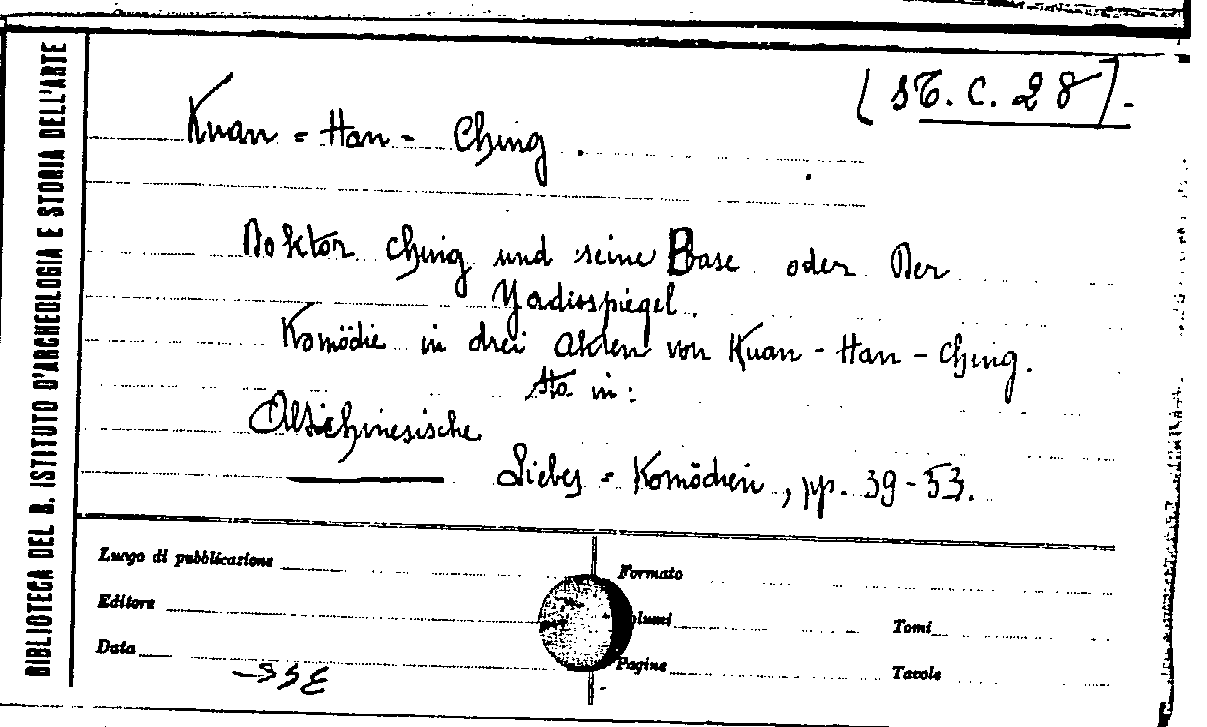 BIBLIOTECA DEL R. ISTITUTO D'ARCHEOLOGIA E STORIA DELL'ARTE
[ST. C. 28].
Kuan = Han - Ching.
Doktor Ching und seine Base oder Der
Yadisspiegel.
Komödie in drei Akten von Kuan - Han - Ching.
Sta in:
Altchinesische
Liebes = Komödien, pp. 39-53.
Luogo di pubblicazione
Formato
Editore
Volumi
Tomi
Data
Pagine
Tavole